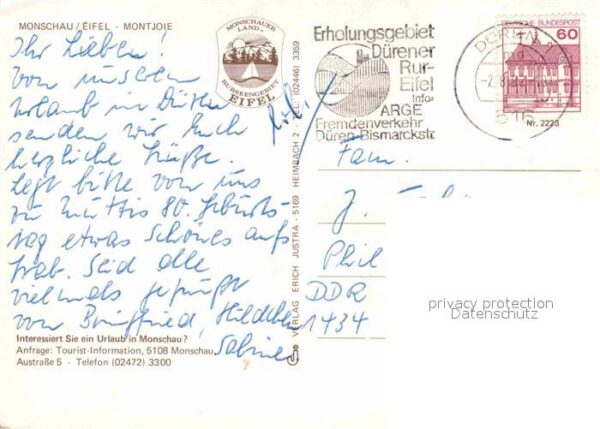 MONSCHAU/EIFEL - MONTJOIE
Ihr Lieben!
Von unserem
Urlaub in Düren
senden wir Euch
herzliche Grüße.
Legt bitte von uns
zu Muttis 80. Geburts-
tag etwas Schönes aufs
Grab. Seid alle
vielmals gegrüßt
von Hildchen
Sabine
Interessiert Sie ein Urlaub in Monschau?
Anfrage: Tourist-Information, 5108 Monschau
Austraße 5 - Telefon (02472) 3300
MONSCHAUER
LAND
RURSEENGEBIET
EIFEL
VERLAG ERICH JUSTRA - 5169 HEIMBACH 2 - TEL. (02446) 3359
Erholungsgebiet
Dürener
Rur-
Eifel
Info:
ARGE
Fremdenverkehr
Düren·Bismarckstr.
DÜREN
516
DEUTSCHE BUNDESPOST
60
Nr. 2223
Fam.
J.
Phil
DDR
1434
privacy protection
Datenschutz